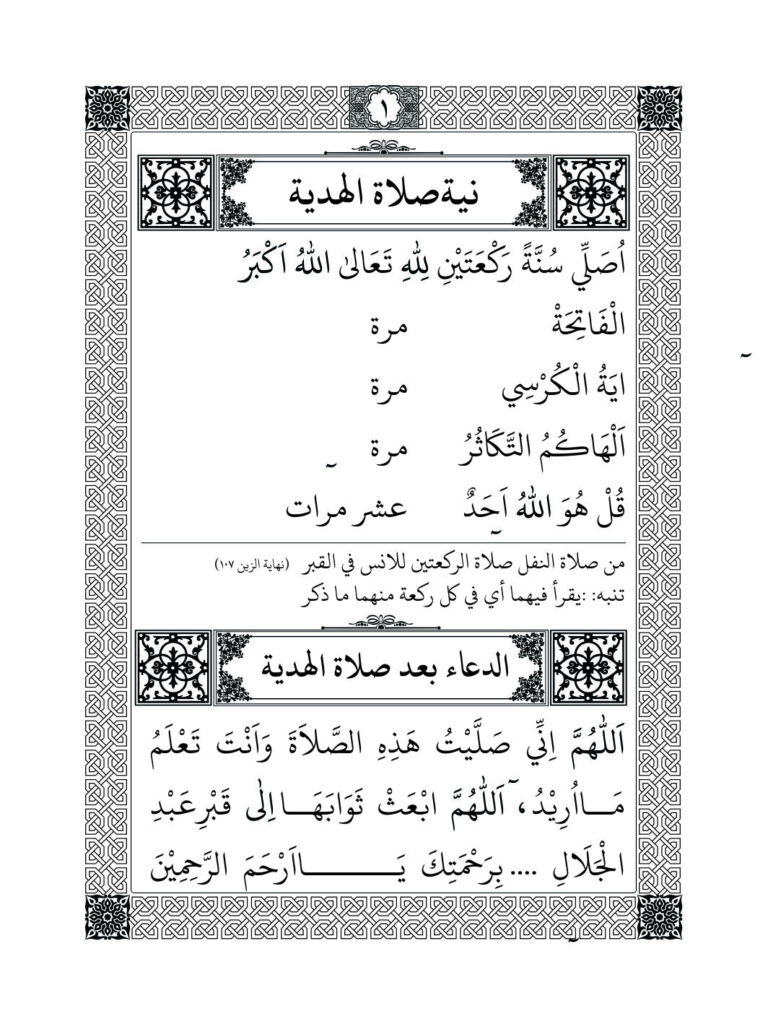 ١
نية صلاة الهدية
اُصَلِّي سُنَّةً رَكْعَتَيْنِ لِلّٰهِ تَعَالىٰ اللهُ اَكْبَرُ
الْفَاتِحَةْ مرة
ايَةُ الْكُرْسِي مرة
اَلْهَاكُمُ التَّكَاثُرُ مرة
قُلْ هُوَ اللهُ اَحَدٌ عشر مرات
من صلاة النفل صلاة الركعتين للانس في القبر (نهاية الزين ١٠٧)
تنبه: :يقرأ فيهما أي في كل ركعة منهما ما ذكر
الدعاء بعد صلاة الهدية
اَللّٰهُمَّ اِنِّي صَلَّيْتُ هَذِهِ الصَّلاَةَ وَاَنْتَ تَعْلَمُ
مَــااُرِيْدُ، اَللّٰهُمَّ ابْعَثْ ثَوَابَهَــااِلٰى قَبْرِعَبْدِ
الْجَلَالِ .... بِرَحْمَتِكَ يَــــــــااَرْحَمَ الرَّحِمِيْنَ